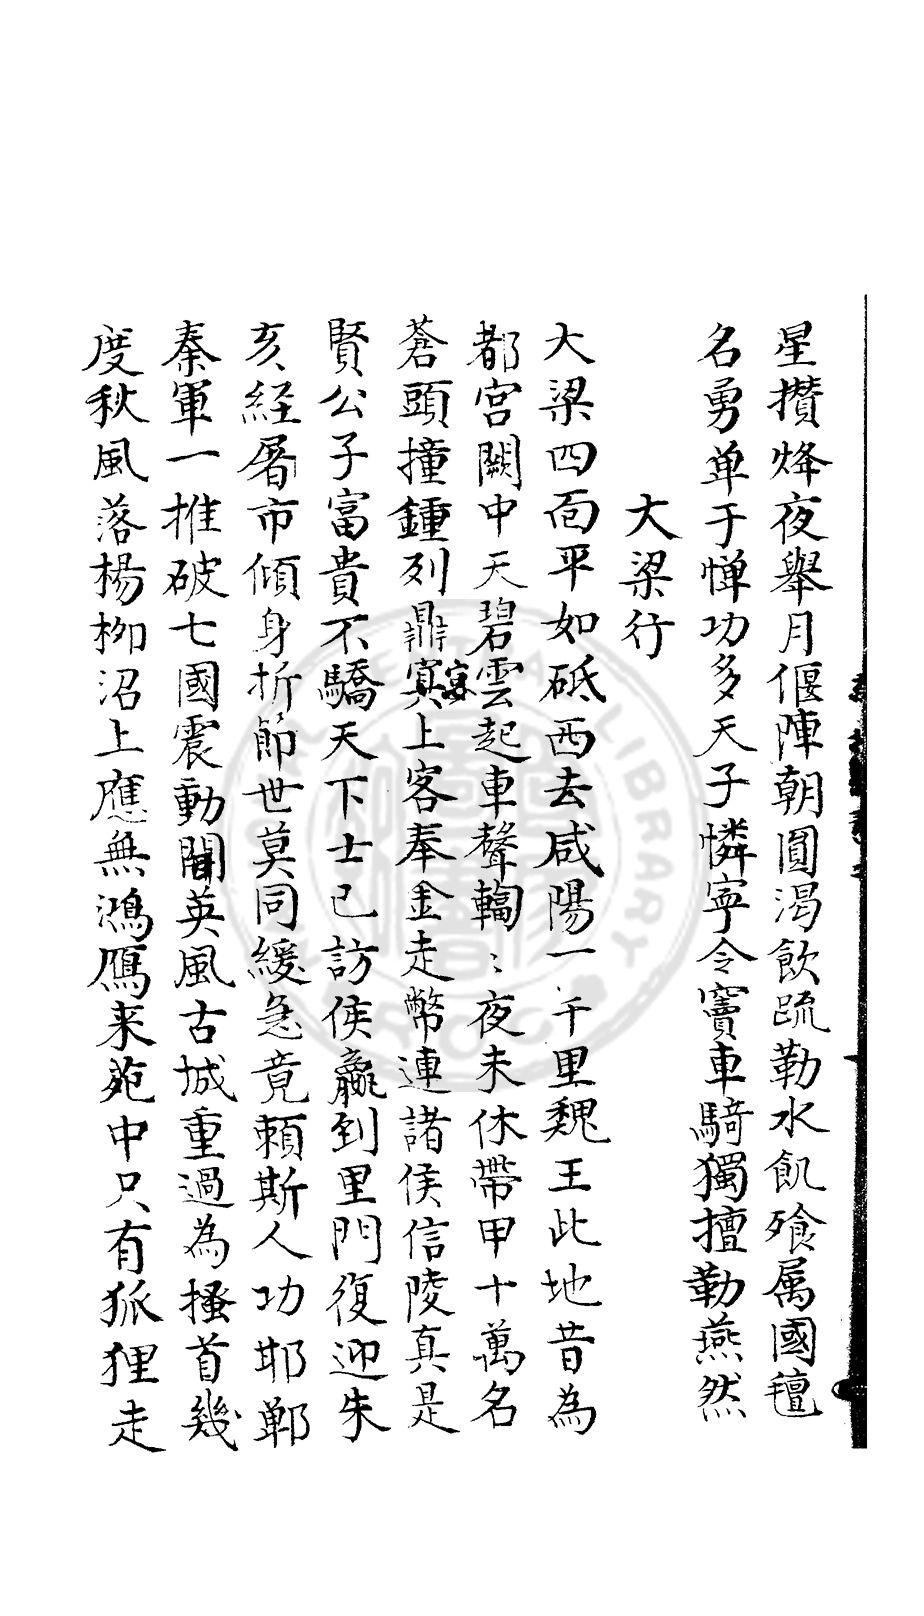 星攢烽夜舉月偃陣朝圓渴飲疏勒水飢飱属國氊
名勇单于惮功多天子憐寧令竇車騎獨擅勒燕然
大梁行
大梁四面平如砥西去咸陽一千里魏王此地昔為
都宮闕中天碧雲起車聲轀〻夜未休帶甲十萬名
蒼頭撞鍾列鼎寘宴上客奉金走幣連諸侯信陵真是
賢公子富貴不驕天下士已訪侯嬴到里門復迎朱
亥経屠市傾身折節世莫同緩急竟頼斯人功邯鄲
秦軍一推破七國震動聞英風古城重過為搔首幾
度秋風落楊柳沼上應無鴻鴈来苑中只有狐狸走
CENTRAL LIBRARY